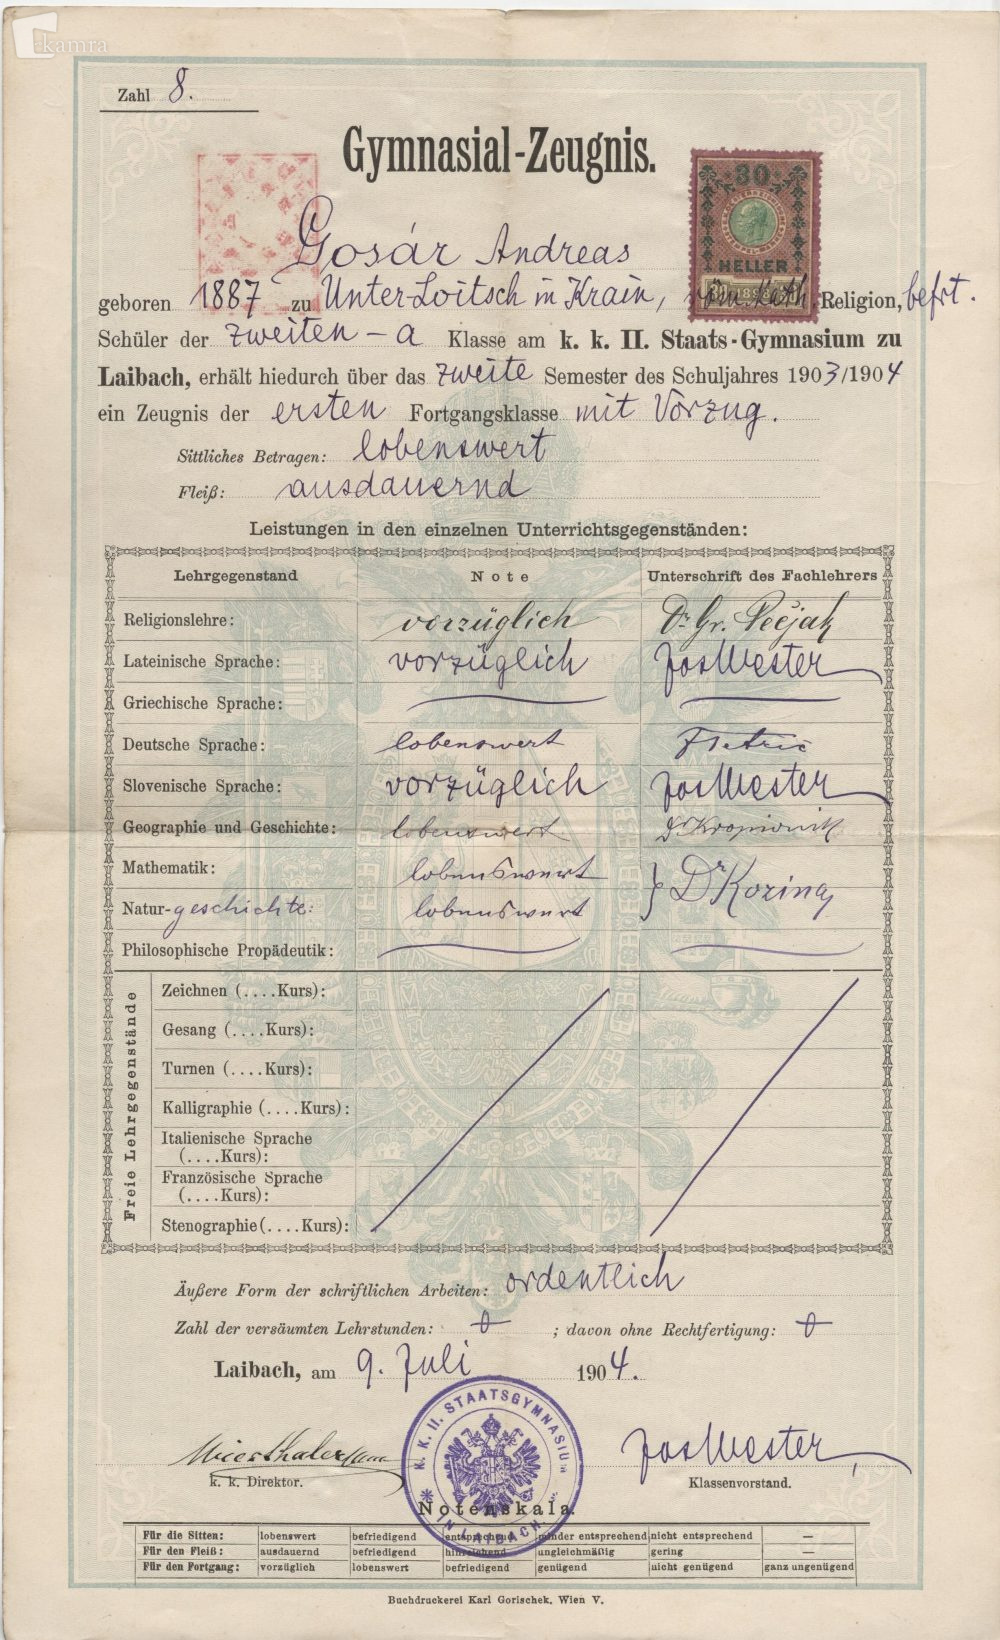 kamra
Zahl 8.
Gymnasial-Zeugnis.
30
HELLER
1898
Gosár Andreas
geboren 1887 zu Unter-Loitsch in Krain, röm. kath. Religion, befrt.
Schüler der zweiten - a Klasse am k. k. II. Staats-Gymnasium zu
Laibach, erhält hiedurch über das zweite Semester des Schuljahres 1903/1904
ein Zeugnis der ersten Fortgangsklasse mit Vorzug.
Sittliches Betragen: lobenswert
Fleiß: ausdauernd
Leistungen in den einzelnen Unterrichtsgegenständen:
Lehrgegenstand Note Unterschrift des Fachlehrers
Religionslehre: vorzüglich Dr Gr. Pečjak
Lateinische Sprache: vorzüglich Jos Wester
Griechische Sprache:
Deutsche Sprache: lobenswert
Slovenische Sprache: vorzüglich Jos Wester
Geographie und Geschichte: lobenswert Dr
Mathematik: lobenswert } Dr
Natur-geschichte: lobenswert
Philosophische Propädeutik:
Freie Lehrgegenstände
Zeichnen (....Kurs):
Gesang (....Kurs):
Turnen (....Kurs):
Kalligraphie (....Kurs):
Italienische Sprache
(....Kurs):
Französische Sprache
(....Kurs):
Stenographie (....Kurs):
Äußere Form der schriftlichen Arbeiten: ordentlich
Zahl der versäumten Lehrstunden: 0 ; davon ohne Rechtfertigung: 0
Laibach, am 9. Juli 1904.
K. K. II. STAATSGYMNASIUM * IN LAIBACH
Jos Wester
k. k. Direktor. Klassenvorstand.
Notenskala.
Für die Sitten: lobenswert befriedigend entsprechend minder entsprechend nicht entsprechend —
Für den Fleiß: ausdauernd befriedigend hinreichend ungleichmäßig gering —
Für den Fortgang: vorzüglich lobenswert befriedigend genügend nicht genügend ganz ungenügend
Buchdruckerei Karl Gorischek, Wien V.